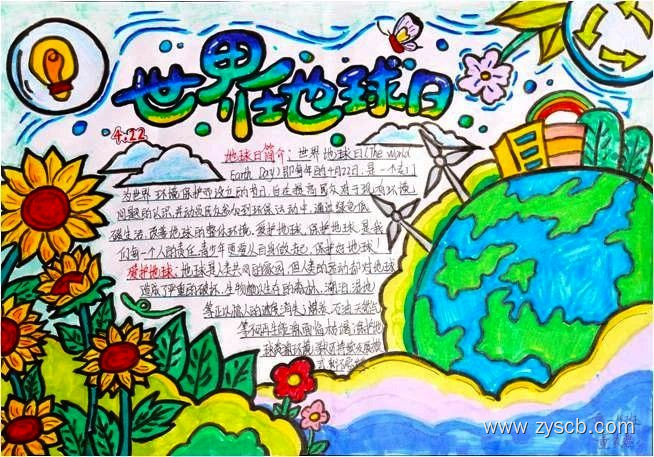 世界地球日
4.22
地球日简介：世界地球日(The world
Earth Day)即每年的4月22日，是一个专门
为世界环境保护而设立的节日，旨在提高民众对于现有环境
问题的认识，并动员民众参与到环保运动中，通过绿色低
碳生活，改善地球的整体环境。爱护地球，保护地球，是我
们每一个人的责任，青少年更要从自身做起，保护好地球！
爱护地球：地球是人类共同的家园，但人类的活动却对地球
造成了严重的破坏。生物赖以生存的森林、湖泊、湿地
等正以惊人的速度消失；煤炭、石油、天然气
等不可再生能源
www.zyscb.com